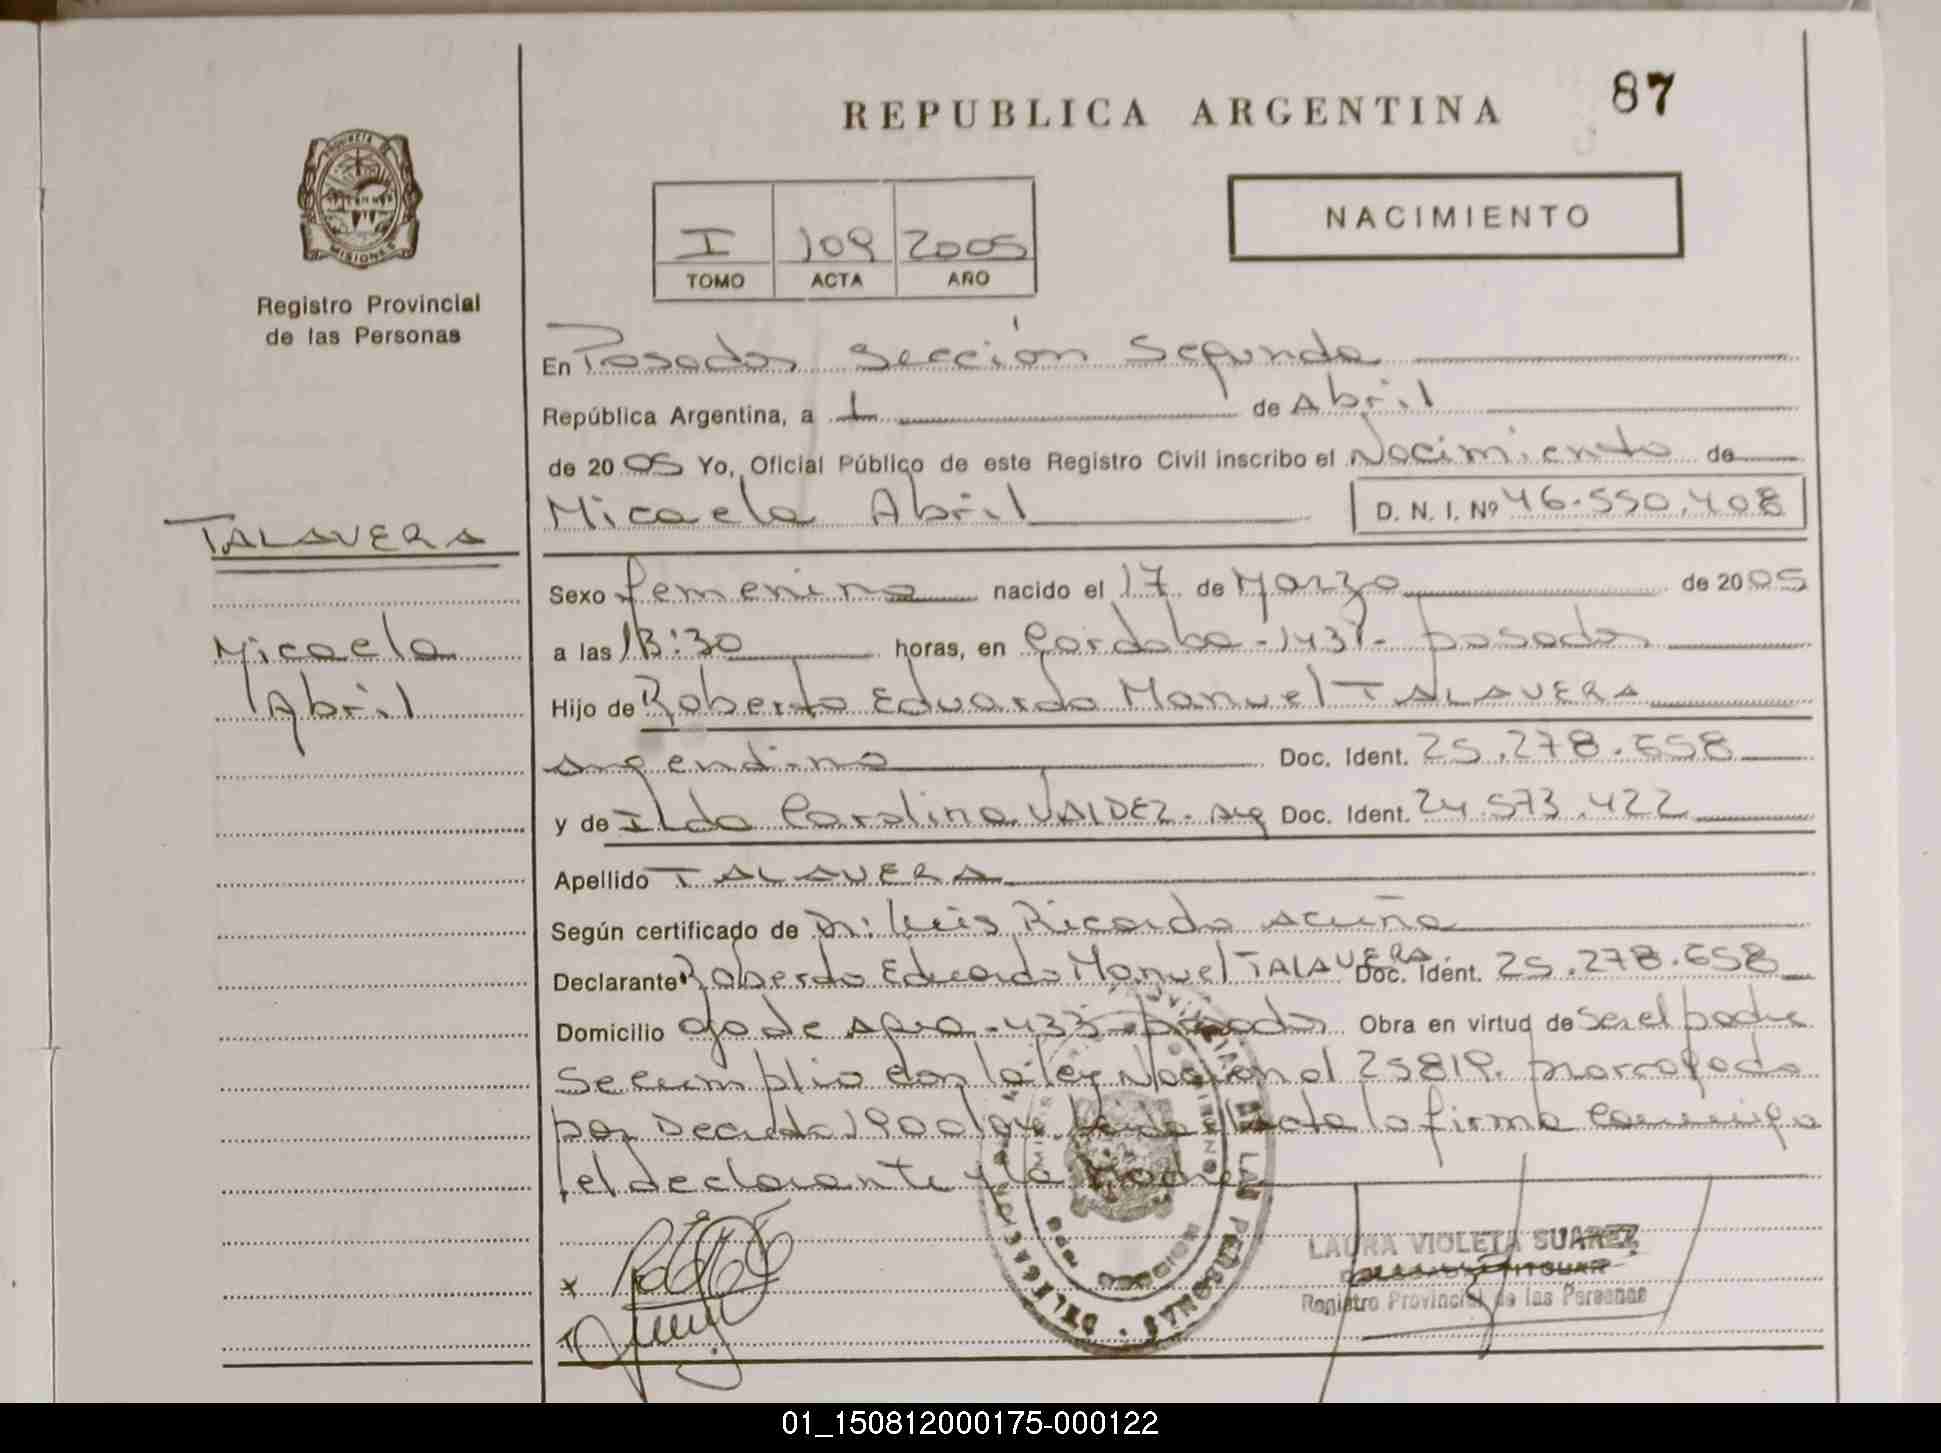 REPUBLICA ARGENTINA
87
PROVINCIA DE
MISIONES
Registro Provincial
de las Personas
I 109 2005
TOMO ACTA AÑO
NACIMIENTO
En Posadas Sección Segunda
República Argentina, a 1 de Abril
de 2005 Yo, Oficial Público de este Registro Civil inscribo el Nacimiento de
Micaela Abril D. N. I. Nº 46.550.408
TALAVERA
Micaela
Abril
Sexo femenino nacido el 17 de Marzo de 2005
a las 13:30 horas, en Cordoba - posadas
Hijo de Roberto Eduardo Manuel TALAVERA
argentino Doc. Ident. 25.278.658
y de Ilda Carolina VALDEZ. arg Doc. Ident. 24.573.422
Apellido TALAVERA
Según certificado de Dr: Luis Ricardo Acuña
Declarante Roberto Eduardo Manuel TALAVERA Doc. Ident. 25.278.658
Domicilio 433 - posadas Obra en virtud de ser el padre
se cumplio con la ley Nacional 25819. prorrogada
por Decreto Leida el acta la firma conmigo
el declarante y la Madre
LAURA VIOLETA SUAREZ
Registro Provincial de las Personas
01_150812000175-000122